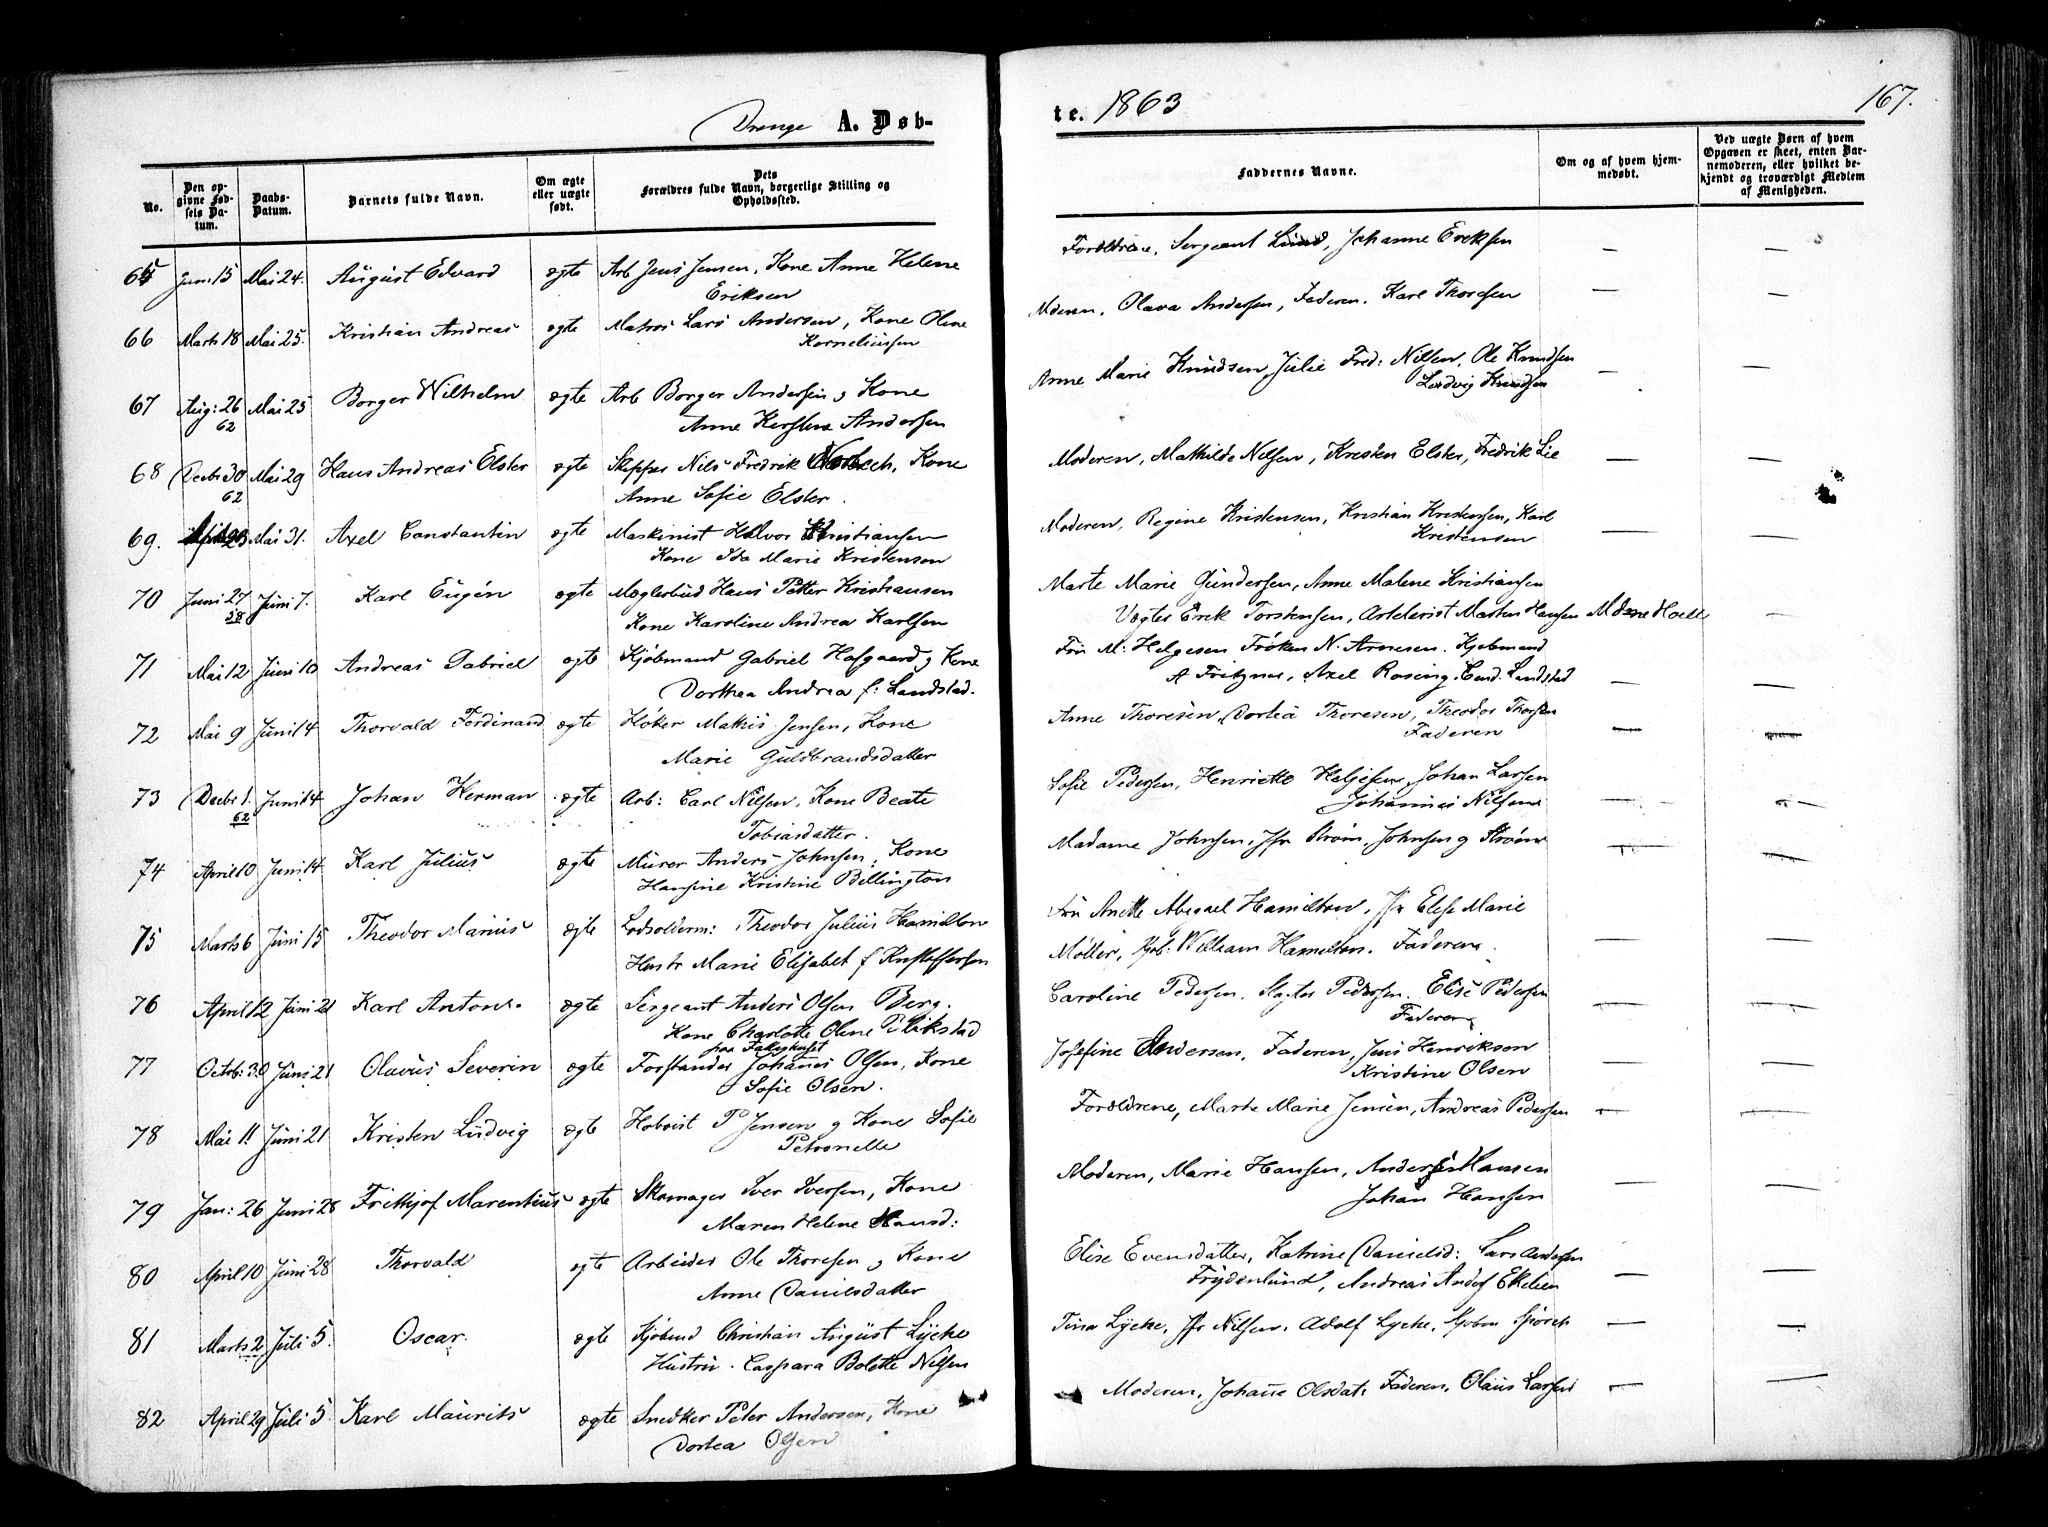 Drenge A. Døb-
No.
Den op-
givne Fød-
sels Da-
tum.
Daabs-
Datum.
Barnets fulde Navn.
Om ægte
eller uægte
født.
Dets
Forældres fulde Navn, borgerlige Stilling og
Opholdssted.
65 Juni 15 Mai 24. August Edvard ægte Arb Jens Jensen, Kone Anne Helene
Eriksen
66 Marts 18 Mai 25. Kristian Andreas ægte Matros Lars Andersen, Kone Oline
Korneliussen
67 Aug: 26 Mai 25 Borger Wilhelm ægte Arb Borger Andersen og Kone
62 Anne Andersen
68 Decbr 30 Mai 29 Hans Andreas Elster ægte Skipper Nils Fredrik Kone
62 Anne Sofie Elster.
69. April 23 Mai 31. Axel Constantin ægte Maskinist Halvor Kristiansen
Kone Ida Marie Kristensen
70 Juni 27 Juni 7. Karl Eugén ægte Mæglerbud Hans Petter Kristiansen
58 Kone Karoline Andrea Karlsen
71 Mai 12 Juni 10 Andreas Gabriel ægte Kjøbmand Gabriel Hofgaard og Kone
Dorthea Andrea f: Landstad.
72 Mai 9 Juni 14 Thorvald Ferdinand ægte Høker Mathis Jensen, Kone
Marie Guldbrandsdatter
73 Decbr 1. Juni 14 Johan Herman ægte Arb: Carl Nilsen, Kone Beate
62 Tobiasdatter.
74 April 10 Juni 14 Karl Julius ægte Murer Anders Johnsen, Kone
Hansine Kristine Billington
75 Marts 6 Juni 15 Theodor Marius ægte Lodsolderm: Theodor Julius Hamilton
Hustr Marie Elisabet f Kristoffersen
76 April 12 Juni 21 Karl Anton ægte Sergeant Anders Olsen Berg.
Kone Charlotte Oline
paa
77 Octrb: 30 Juni 21 Olavus Severin ægte Forstander Johanes Olsen, Kone
Sofie Olsen.
78 Mai 11 Juni 21 Kristen Ludvig ægte Hoboist P Jensen og Kone Sofie
Petronelle
79 Jan: 26 Juni 28 Frithjof Marentius ægte Skomager Iver Iversen, Kone
Maren Helene Hansd:
80 April 10 Juni 28 Thorvald ægte Arbeider Ole Thoresen og Kone
Anne Danielsdatter
81 Marts 2 Juli 5. Oscar. ægte Kjøbmd Christian August Lycke
Hustru. Caspara Bolette Nilsen
82 April 29 Juli 5 Karl Maurits ægte Snedker Peter Andersen, Kone
Dortea Olsen
te. 1863 167.
Faddernes Navne.
Om og af hvem hjem-
medøbt.
Ved uægte Børn af hvem
Opgaven er skeet, enten Bar-
nemoderen, eller hvilket be-
kjendt og troværdigt Medlem
af Menigheden.
Forældrene, Sergeant Lund, Johanne Eriksen — —
Moderen, Olava Andersen, Faderen. Karl Thoresen — —
Anne Marie Knudsen, Julie Fred: Nilsen, Ole Knudsen
Ludvig Knudsen — —
Moderen, Mathilde Nilsen, Kresten Elster, Fredrik Lie — —
Moderen, Regine Kristensen, Kristian Kristensen, Karl
Kristensen — —
Marte Marie Gundersen, Anne Malene Kristiansen
Vægter Erik Torstensen, Artilerist Martin Hansen —
Fru M. Helgesen Frøken N. Arnesen. Kjøbmand
A Fritzner, Axel Rosing. Cand. Landstad — —
Anne Thoresen, Dortea Thoresen, Theodor Thorsen
Faderen — —
Sofie Pedersen, Henriette Helgesen, Johan Larsen
Johannes Nilsen — —
Madame Johnsen, Jfr Strøm. Johnsen og Strøm — —
Fru Anette Abigael Hamilton, Jfr Elise Marie
Møller, William Hamilton. Faderen — —
Caroline Pedersen. Pedersen. Elise Pedersen
Faderen — —
Josefine Andersen, Faderen, Jens Henriksen
Kristine Olsen — —
Forældrene, Marte Marie Jensen, Andreas Pedersen — —
Moderen, Marie Hansen, Anders Hansen
Johan Hansen — —
Elise Evensdatter, Katrine Danielsd: Lars Andersen
Frydenlund, Andreas Ekelien — —
Tina Lycke, Jfr Nilsen. Adolf Lycke. — —
Moderen, Johanne Olsdat. Faderen, Olaus Larsen — —